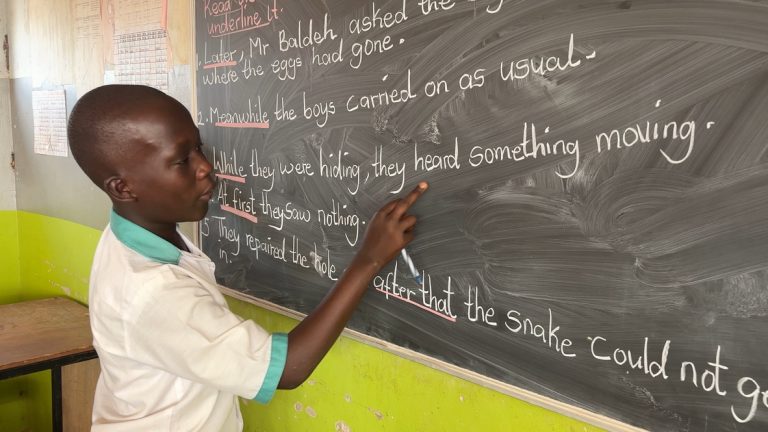 Read
underline it.
1. Later, Mr Baldeh asked the
where the eggs had gone.
2. Meanwhile the boys carried on as usual.
While they were hiding, they heard something moving.
At first they saw nothing.
5. They repaired the hole after that the snake could not
in.